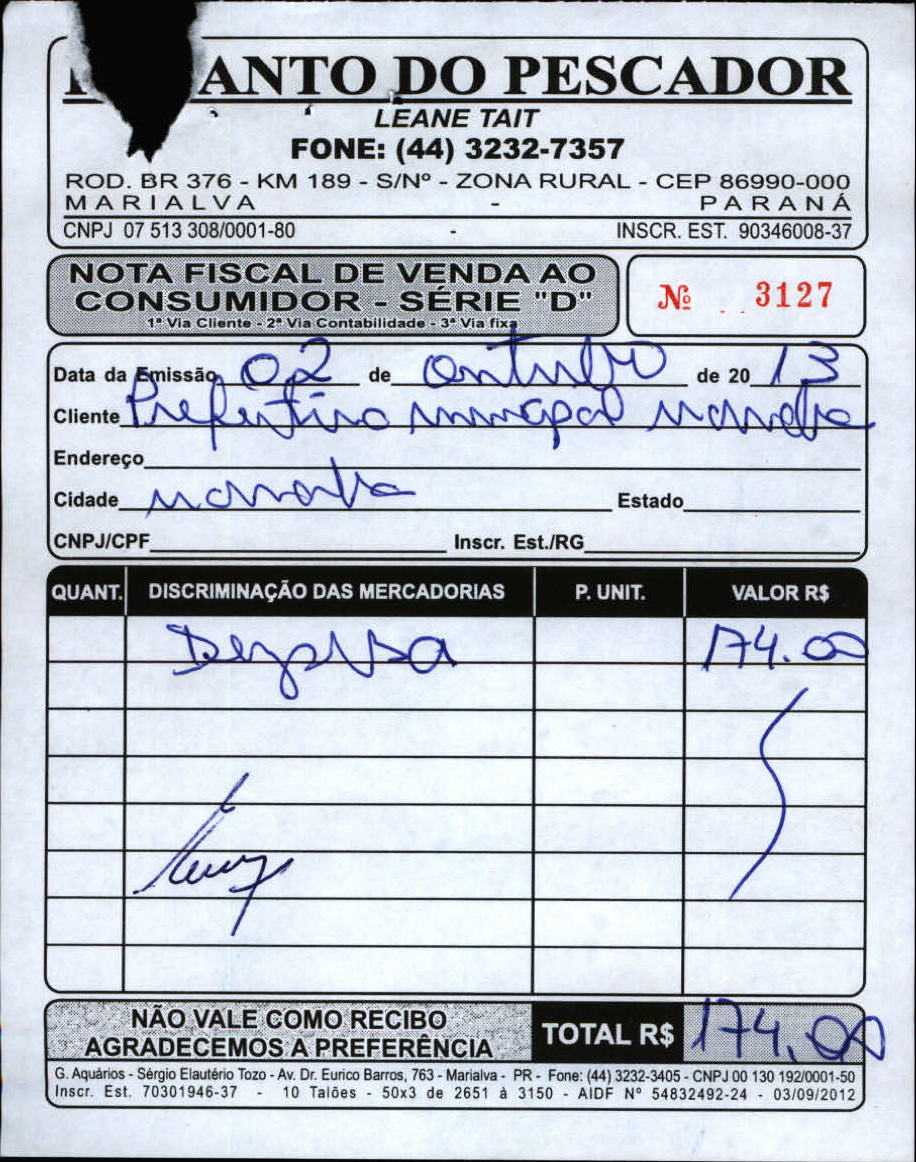 ANTO DO PESCADOR
LEANE TAIT
FONE: (44) 3232-7357
ROD. BR 376 - KM 189 - S/Nº - ZONA RURAL - CEP 86990-000
MARIALVA - PARANÁ
CNPJ 07 513 308/0001-80 - INSCR. EST. 90346008-37
NOTA FISCAL DE VENDA AO
CONSUMIDOR - SÉRIE "D"
1ª Via Cliente - 2ª Via Contabilidade - 3ª Via fixa
Nº 3127
Data da Emissão 02 de outubro de 2013
Cliente Prefeitura municipal marialva
Endereço
Cidade marialva Estado
CNPJ/CPF Inscr. Est./RG
QUANT. DISCRIMINAÇÃO DAS MERCADORIAS P. UNIT. VALOR R$
Despesa 174.00
NÃO VALE COMO RECIBO
AGRADECEMOS A PREFERÊNCIA
TOTAL R$ 174,00
G. Aquários - Sérgio Elautério Tozo - Av. Dr. Eurico Barros, 763 - Marialva - PR - Fone: (44) 3232-3405 - CNPJ 00 130 192/0001-50
Inscr. Est. 70301946-37 - 10 Talões - 50x3 de 2651 à 3150 - AIDF Nº 54832492-24 - 03/09/2012